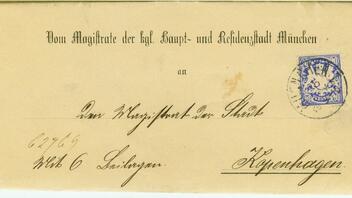 Vom Magistrate der kgl. Haupt- und Residenzstadt München
an
den Magistrat der Stadt
62769
Mit 6 Beilagen.
Kopenhagen.